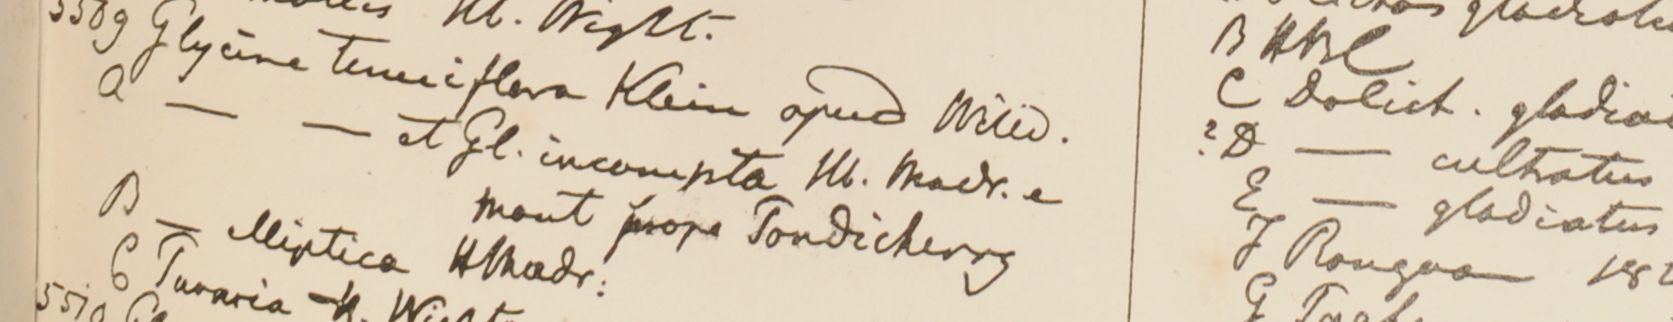 mollis Hb. Wight.
5509 Glycine tenuiflora Klein apud Willd.
a — — et Gl. incompta Hb. Madr. e
mont prope Pondicherry
B — elliptica HMadr:
C Turaria H. Wight
5510 Gl
gladiatu
B HBC
C Dolich. gladia
? D — cultratus
E — gladiatus
F Rangoon 182
G